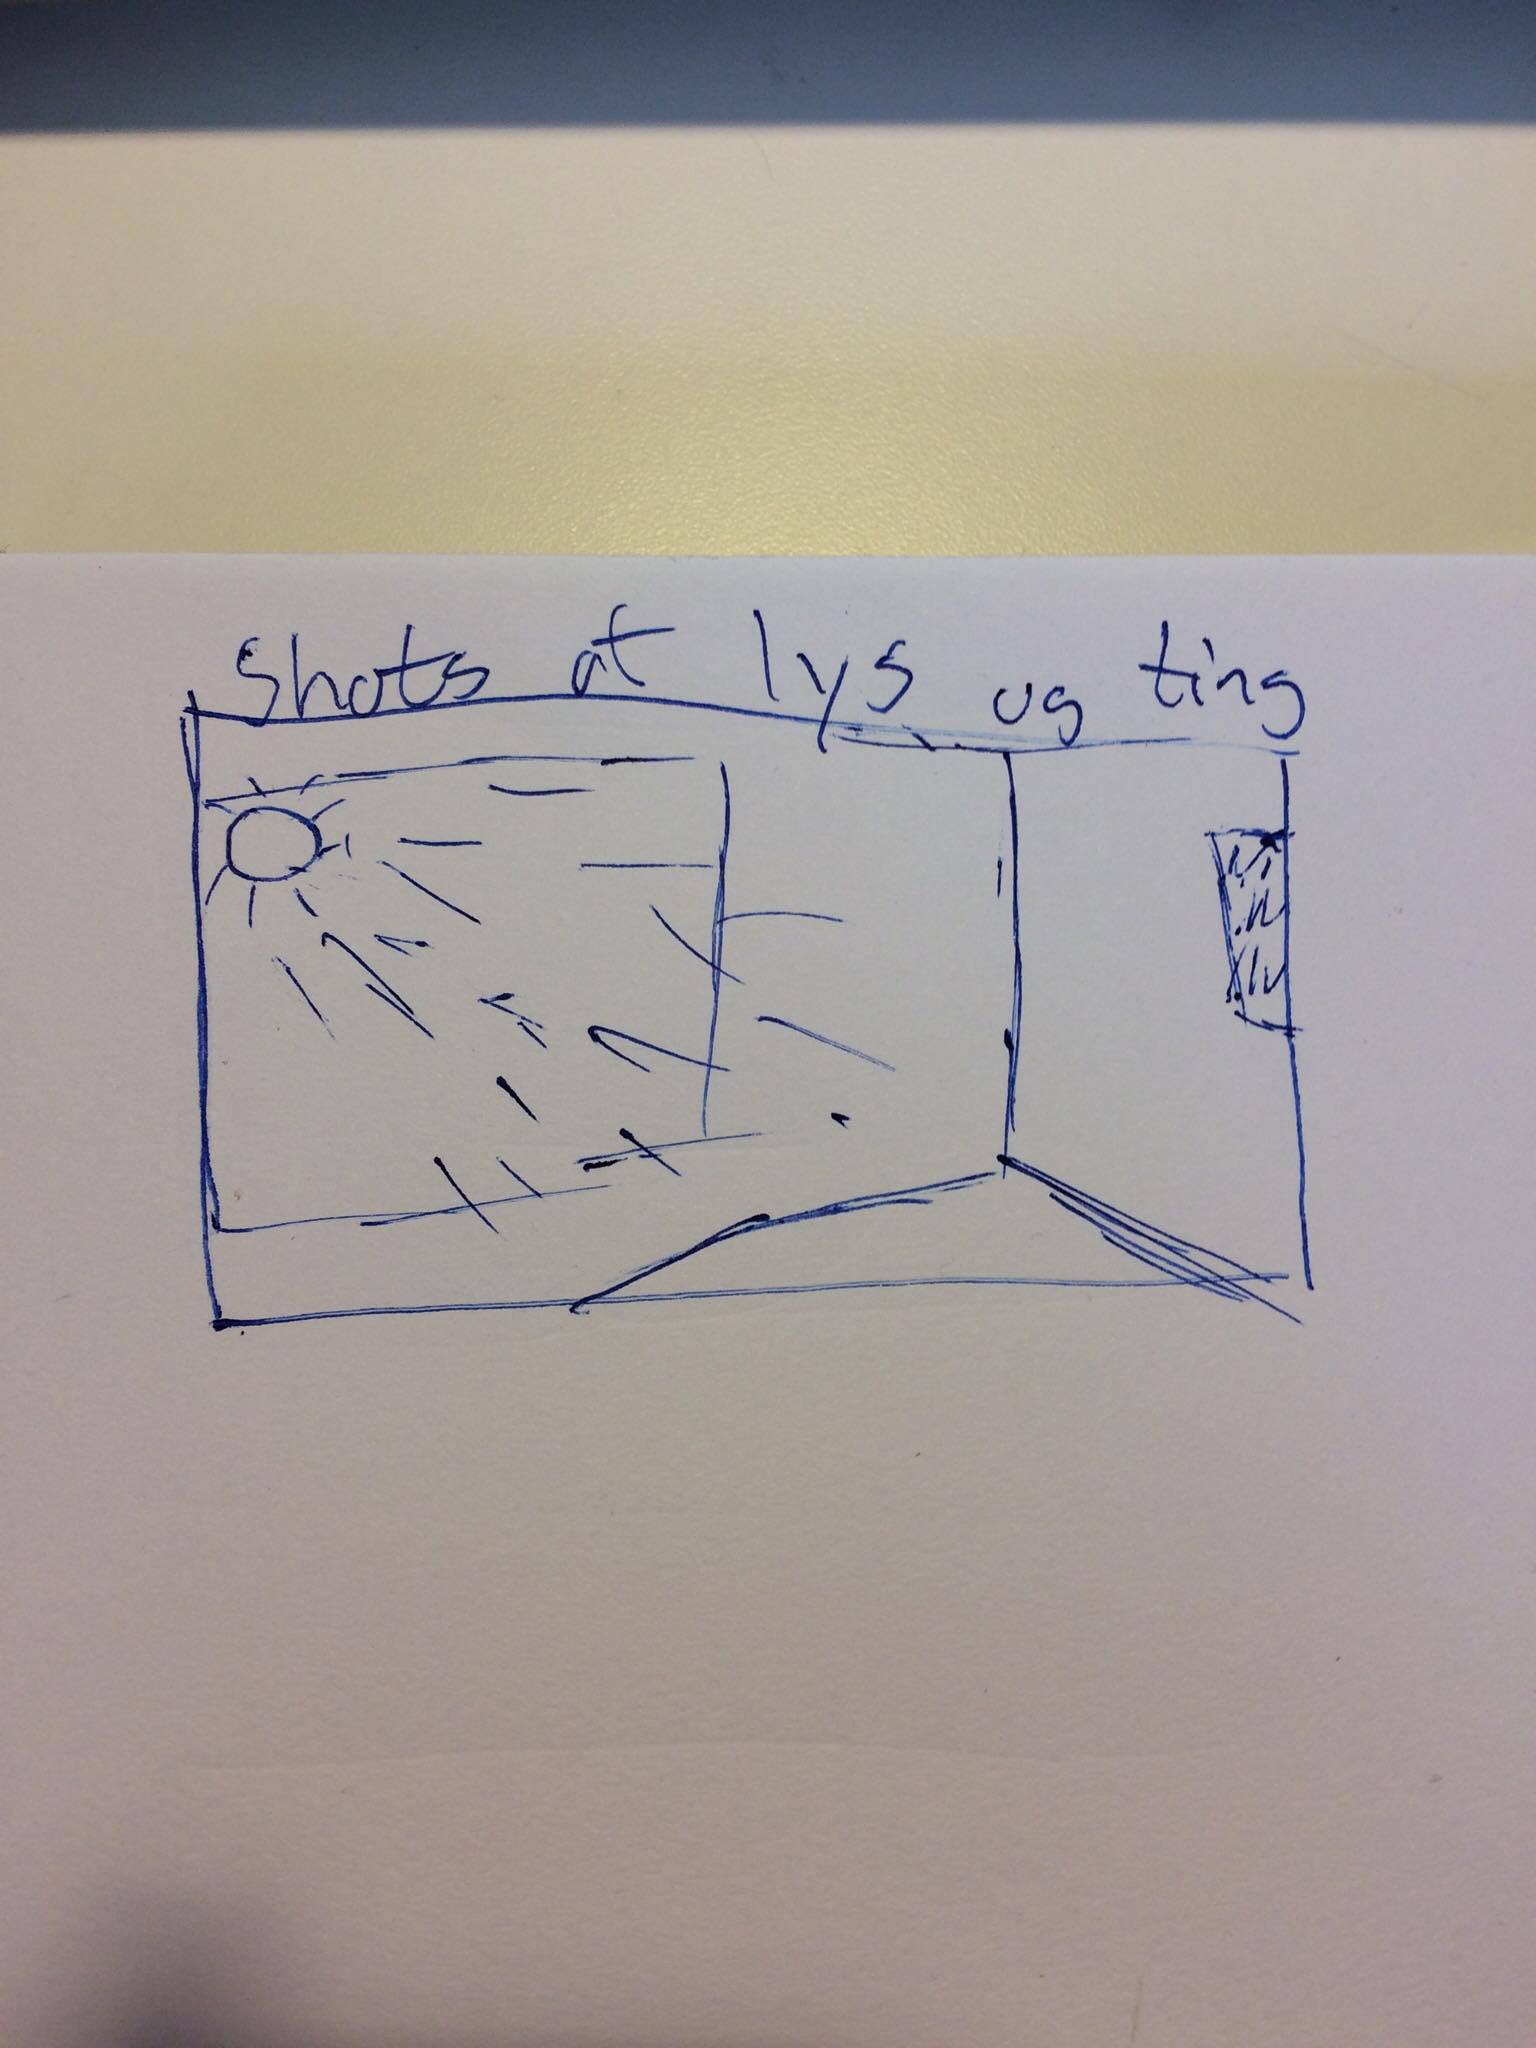 Shots at lys og ting